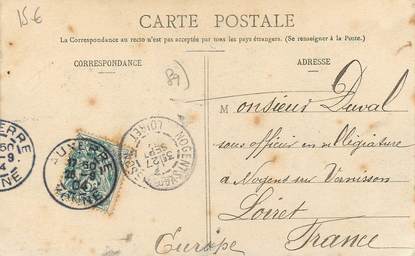 15€
CARTE POSTALE
La Correspondance au recto n'est pas acceptée par tous les pays étrangers. (Se renseigner à la Poste.)
CORRESPONDANCE
ADRESSE
Monsieur Duval
sous officier en villégiature
à Nogent sur Vernisson
Loiret
France
Europe
AUXERRE
YONNE